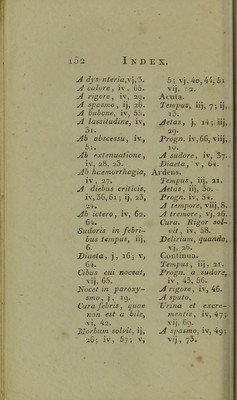 152 INDEX.
A dysenteria, vj, 3.
A calore, iv, 65.
A rigore, iv, 29.
A spasmo, ij, 26.
A bubone, iv, 55.
A lassitudine, iv,
31.
Ab abscessu, iv,
51.
Ab extenuatione,
iv, 28, 23.
Ab haemorrhagia,
iv, 27.
A diebus criticis,
iv, 36, 61; ij, 23,
24.
Ab ictero, iv, 62,
64.
Sudoris in febri-
bus tempus, iij,
6.
Diaeta, j, 16; v,
64.
Cibus cui noceat,
vij, 65.
Nocet in paroxy-
smo, j, 19.
Cura febris, quae
non est a bile,
vi, 42.
Morbum solvit, ij,
26; iv, 57; v,
5; vj, 40, 44, 51
vij, 52.
Acuta.
Tempus, iij, 7; ij,
13.
Aetas, j, 14; iij,
29.
Progn. iv, 66, viij,
10.
A sudore, iv, 37.
Diaeta, v, 64.
Ardens.
Tempus, iij, 21.
Aetas, iij, 30.
Progn. iv, 54.
A tempore, viij, 8.
A tremore, vj, 26.
Cura. Rigor sol-
vit, iv, 58.
Delirium, quando,
vj, 26.
Continua.
Tempus, iij, 21.
Progn. a sudore,
iv, 43, 56.
A rigore, iv, 46.
A sputo,
Urina et excre-
mentis, iv, 47;
vij, 69.
A spasmo, iv, 49;
vij, 73.